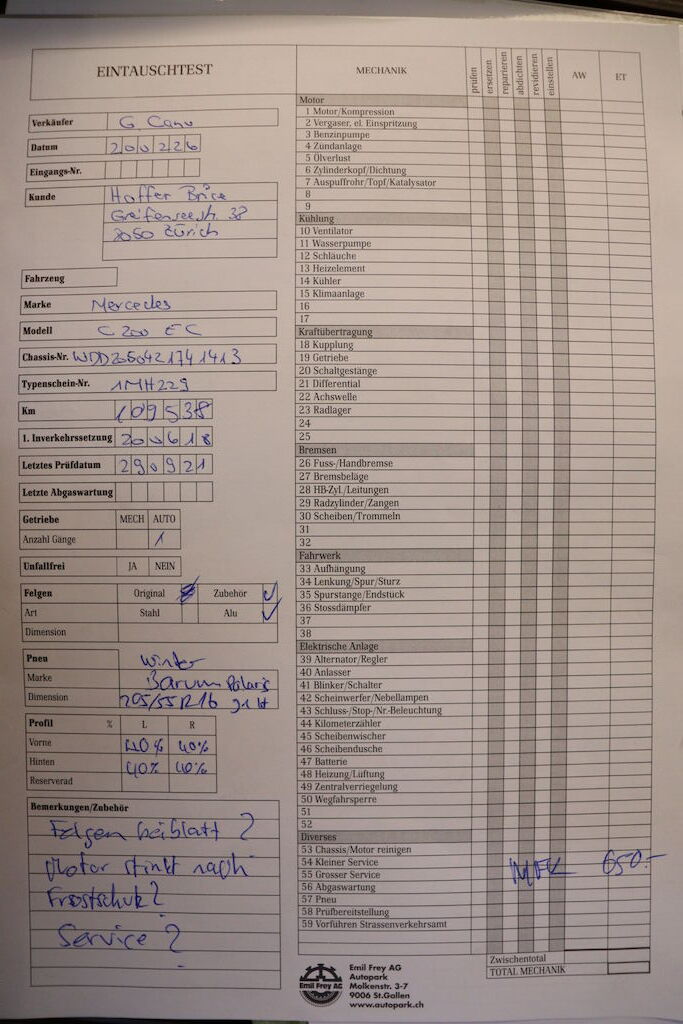 EINTAUSCHTEST
Verkäufer G. Canu
Datum 200226
Eingangs-Nr.
Kunde Hoffer Brice
Greifenseestr. 38
8050 Zürich
Fahrzeug
Marke Mercedes
Modell C 200 EC
Chassis-Nr. WDD2050421741413
Typenschein-Nr. 1MH229
Km 109538
1. Inverkehrssetzung 200618
Letztes Prüfdatum 290921
Letzte Abgaswartung
Getriebe MECH AUTO
Anzahl Gänge 1
Unfallfrei JA NEIN
Felgen Original Zubehör ✓
Art Stahl Alu ✓
Dimension
Pneu Winter
Marke Barum Polaris
Dimension 205/55R16 91H
Profil % L R
Vorne 40% 40%
Hinten 40% 40%
Reserverad
Bemerkungen/Zubehör
Felgen beiblatt ?
Motor stinkt nach
Frostschutz?
Service ?
MECHANIK prüfen ersetzen reparieren abdichten revidieren einstellen AW ET
Motor
1 Motor/Kompression
2 Vergaser, el. Einspritzung
3 Benzinpumpe
4 Zündanlage
5 Ölverlust
6 Zylinderkopf/Dichtung
7 Auspuffrohr/Topf/Katalysator
8
9
Kühlung
10 Ventilator
11 Wasserpumpe
12 Schläuche
13 Heizelement
14 Kühler
15 Klimaanlage
16
17
Kraftübertragung
18 Kupplung
19 Getriebe
20 Schaltgestänge
21 Differential
22 Achswelle
23 Radlager
24
25
Bremsen
26 Fuss-/Handbremse
27 Bremsbeläge
28 HB-Zyl./Leitungen
29 Radzylinder/Zangen
30 Scheiben/Trommeln
31
32
Fahrwerk
33 Aufhängung
34 Lenkung/Spur/Sturz
35 Spurstange/Endstück
36 Stossdämpfer
37
38
Elektrische Anlage
39 Alternator/Regler
40 Anlasser
41 Blinker/Schalter
42 Scheinwerfer/Nebellampen
43 Schluss-/Stop-/Nr.-Beleuchtung
44 Kilometerzähler
45 Scheibenwischer
46 Scheibendusche
47 Batterie
48 Heizung/Lüftung
49 Zentralverriegelung
50 Wegfahrsperre
51
52
Diverses
53 Chassis/Motor reinigen
54 Kleiner Service
55 Grosser Service MFK 650.-
56 Abgaswartung
57 Pneu
58 Prüfbereitstellung
59 Vorführen Strassenverkehrsamt
Zwischentotal
TOTAL MECHANIK
Emil Frey AG
Emil Frey AG
Autopark
Molkenstr. 3-7
9006 St.Gallen
www.autopark.ch